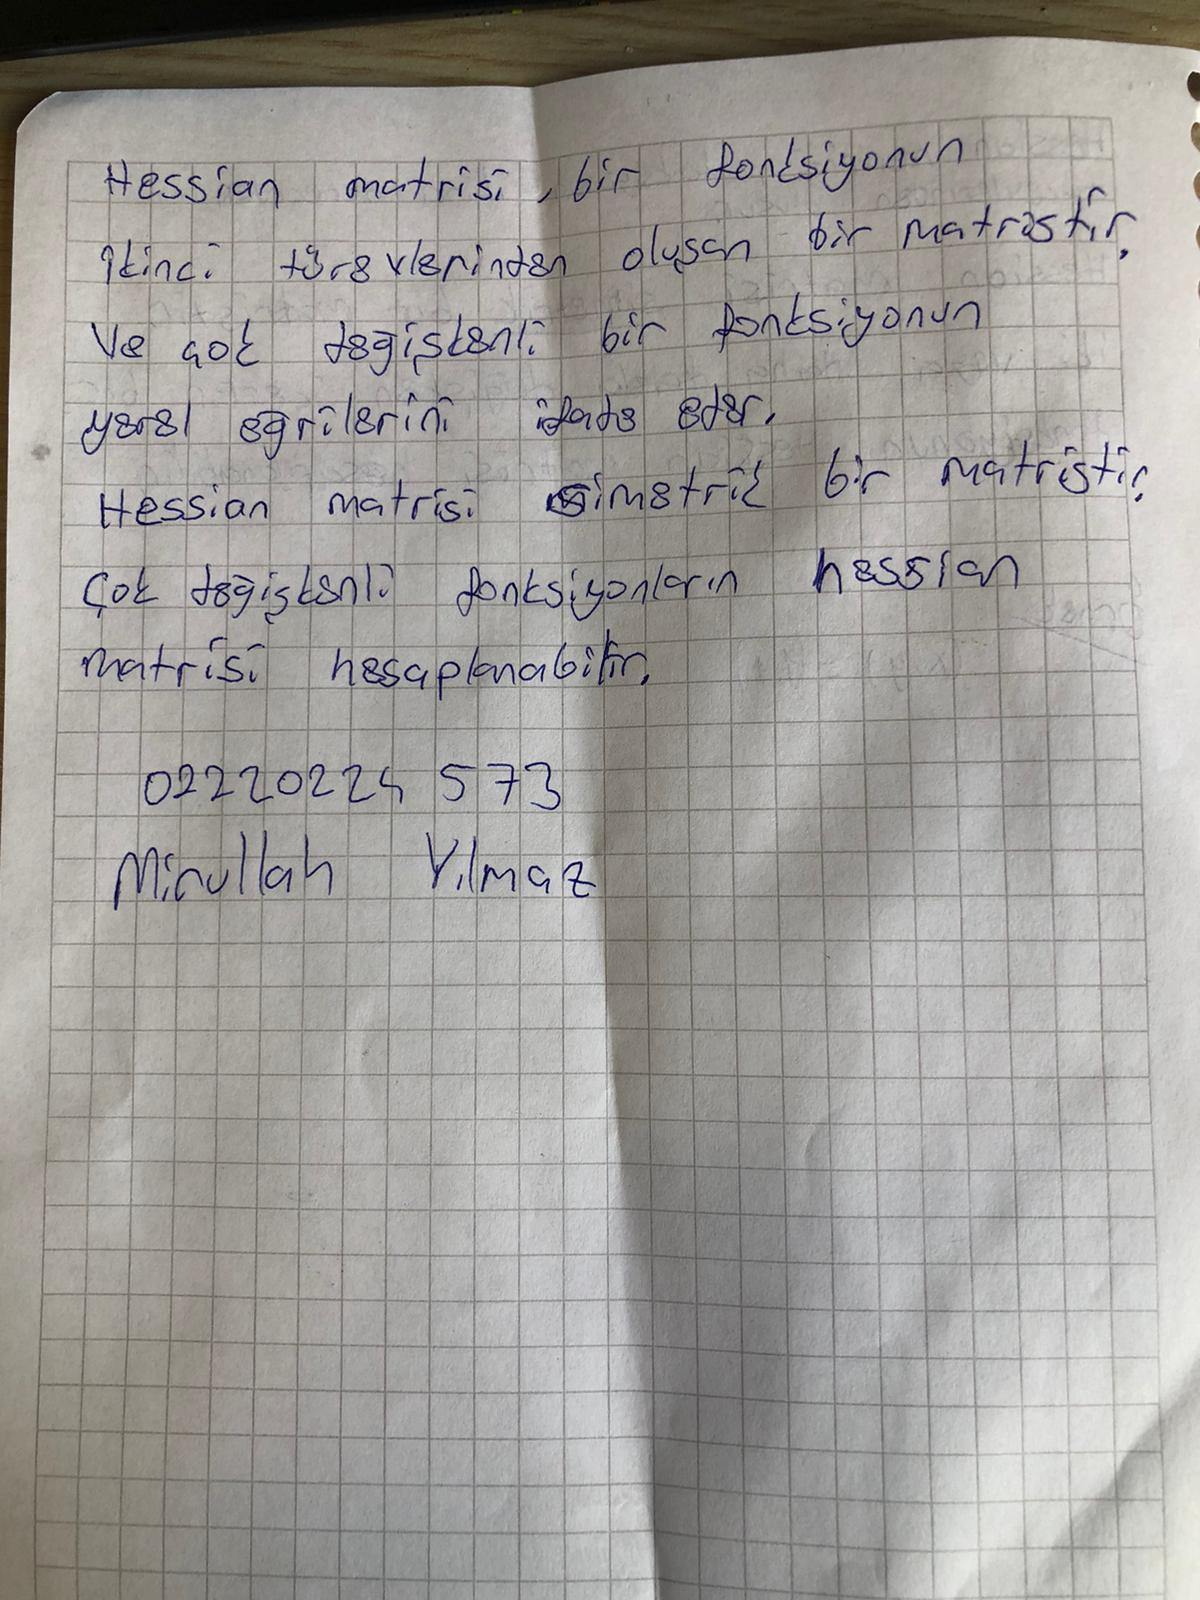 Hessian matrisi, bir fonksiyonun
ikinci türevlerinden oluşan bir matristir.
Ve çok değişkenli bir fonksiyonun
yerel eğrilerini ifade eder.
Hessian matrisi simetrik bir matristir.
Çok değişkenli fonksiyonların hessian
matrisi hesaplanabilir.
02220224573
Mirullah Yılmaz